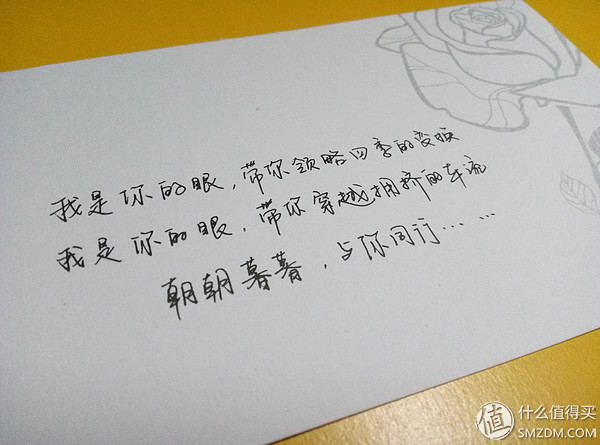 我是你的眼，带你领略四季的变换
我是你的眼，带你穿越拥挤的车流
朝朝暮暮，与你同行……
值 什么值得买
SMZDM.COM